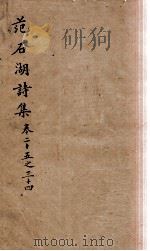 范石湖詩集 卷二十五之三十四